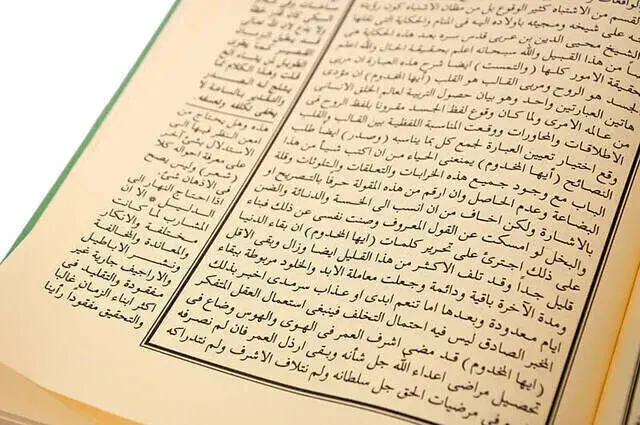 القسم من الاشتباه كثير الوقوع بل من مظان الاشتباه كون رؤية
على شيخه ومجيئه باولاده اليه فى المنام والحكاية التى نقلها
الشيخ محيى الدين بن عربى قدس سره بعد هذه الحكاية هى
من هذا القبيل والله سبحانه اعلم بحقيقة الحال والله اعلم
حقيقة الامور كلها (والتمست) ايضا شرح هذه العبارة ان مربى
الجسد هو الروح ومربى القالب هو القلب (ايها المخدوم) ان مؤدى
هاتين العبارتين واحد وهو بيان حصول التربية لعالم الخلق الانسانى
من عالمه الامرى ولما كان وقوع لفظ الجسد مقرونا بلفظ الروح فى
الاطلاقات والمحاورات ووقعت المناسبة اللفظية بين القالب والقلب
وقع اختيار تعيين العبارة لجمع كل بما يناسبه (وصدر) ايضا طلب
النصائح (ايها المخدوم) يمنعنى الحياء من ان اكتب شيأ من هذا
الباب مع وجود جميع هذه الخرابات والتعلقات والتلوثات وقلة
البضاعة وعدم الحاصل وان ارقم من هذه المقولة حرفا بالتصريح او
بالاشارة ولكن اخاف من ان انسب الى الخسة والدنائة والضن
والبخل لو امسكت عن القول المعروف وصنت نفسى عن ذلك فبناء
على ذلك اجترئ على تحرير كلمات (ايها المخدوم) ان بقاء الدنيا
قليل جدا وقد تلف الاكثر من هذا القليل ايضا وزال وبقى الاقل
ومدة الآخرة باقية ودائمة وجعلت معاملة الابد والخلود مربوطة ببقاء
ايام معدودة وبعدها اما تنعم ابدى او عذاب سرمدى اخبر بذلك
المخبر الصادق ليس فيه احتمال التخلف فينبغى استعمال العقل المتفكر
(ايها المخدوم) قد مضى اشرف العمر فى الهوى والهوس وضاع فى
تحصيل مراضى اعداء الله جل شأنه وبقى ارذل العمر فان لم نصرفه
فى مرضيات الحق جل سلطانه ولم نتلاف الاشرف ولم نتداركه
قلت وهذا الكلام
يخفى تكلفه وتعسفه
هذه وهل يحتاج من
امعن النظر فيها الى
الاستدلال بشئ آخر
على معرفة احواله كلا
(شعر) وليس يصح
فى الاذهان شئ
اذا احتاج النهار الى
الدليل * الا ان
المشارب لما كانت
مختلفة والانكار
والمعاندة والمخالفة
ونشر الاباطيل
والاراجيف جارية غير
مفقودة والتقليد فى
اكثر ابناء الزمان غالبا
والتحقيق مفقودا رأينا